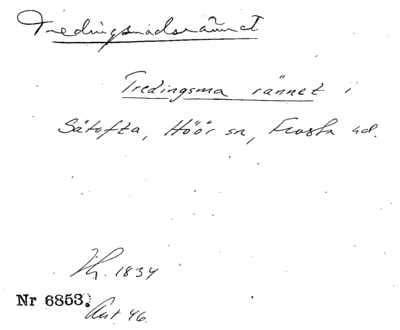 Tredingsmadsrännet
Tredingsma rännet i
Sätofta, Höör sn, Frosta hd.
Th. 1834
Nr 6853.
Ant 46.